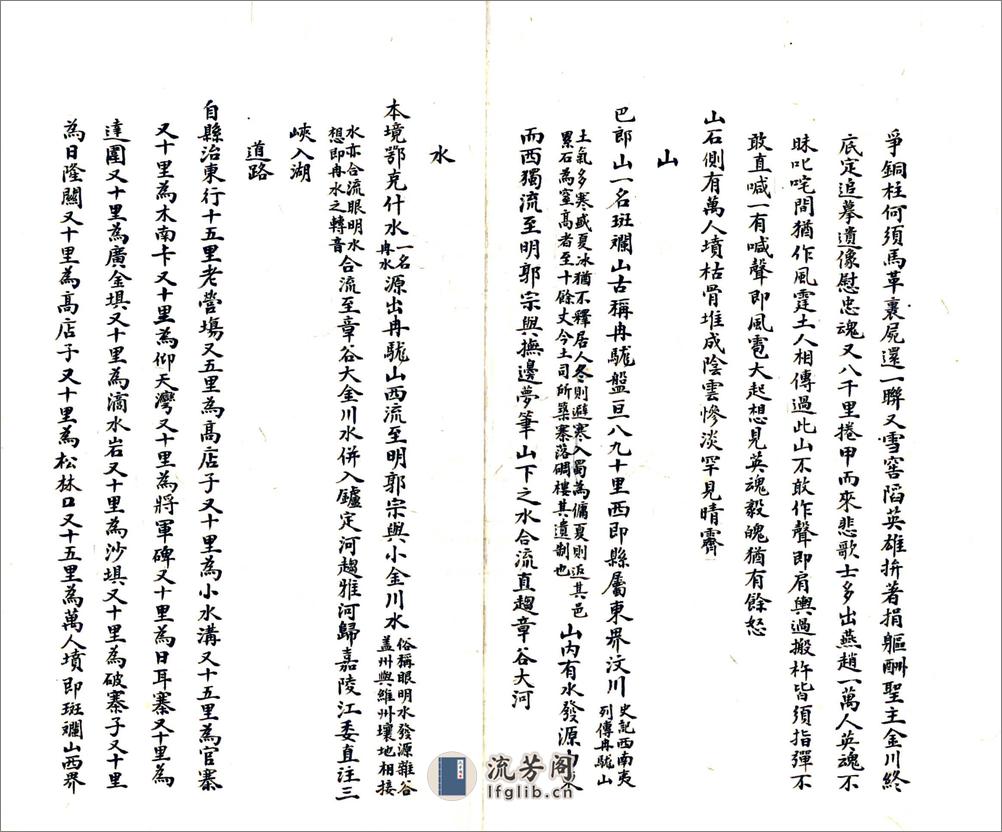 爭銅柱何須馬革裹屍還一聯又雪窖陷英雄拚著捐軀酬聖主金川終
底定追摹遺像慰忠魂又八千里捲甲而來悲歌士多出燕趙一萬人英魂不
昧叱咤間猶作風霆土人相傳過此山不敢作聲即肩輿過搬杵皆須指彈不
敢直喊一有喊聲即風雹大起想見英魂毅魄猶有餘怒
山石側有萬人墳枯骨堆成陰雲慘淡罕見晴霽
山
巴郎山一名斑斕山古稱冉駹盤亘八九十里西即縣屬東界汶川
史記西南夷
列傳冉駹山
土氣多寒盛夏冰猶不釋居人冬則避寒入蜀為傭夏則返其邑
累石為室高者至十餘丈今土司所築寨落碉樓其遺制也
山內有水發源
而西獨流至明郭宗與撫邊夢筆山下之水合流直趨章谷大河
水
本境鄂克什水
一名
冉水
源出冉駹山西流至明郭宗與小金川水
俗稱眼明水發源雜谷
蓋州與維州壤地相接
水亦合流眼明水
想即冉水之轉音
合流至章谷大金川水併入鑪定河趨雅河歸嘉陵江委直注三
峽入湖
道路
自縣治東行十五里老營塲又五里為高店子又十里為小水溝又十五里為官寨
又十里為木南卡又十里為仰天灣又十里為將軍碑又十里為日耳寨又十里為
達圍又十里為廣金垻又十里為滴水岩又十里為沙垻又十里為破寨子又十里
為日隆關又十里為高店子又十里為松林口又十五里為萬人墳即斑斕山西界
流芳阁
lfglib.cn